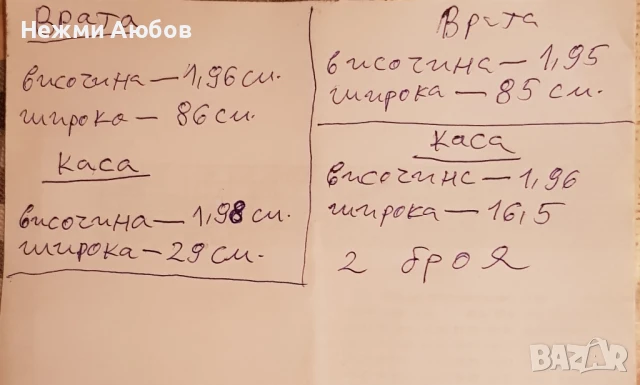 Нежми Аюбов
Врата
височина – 1,96 см.
широка – 86 см.
каса
височина – 1,98 см.
широка – 29 см.
Врата
височина – 1,95
широка – 85 см.
каса
височинс – 1,96
широка – 16,5
2 броя
BAZAR